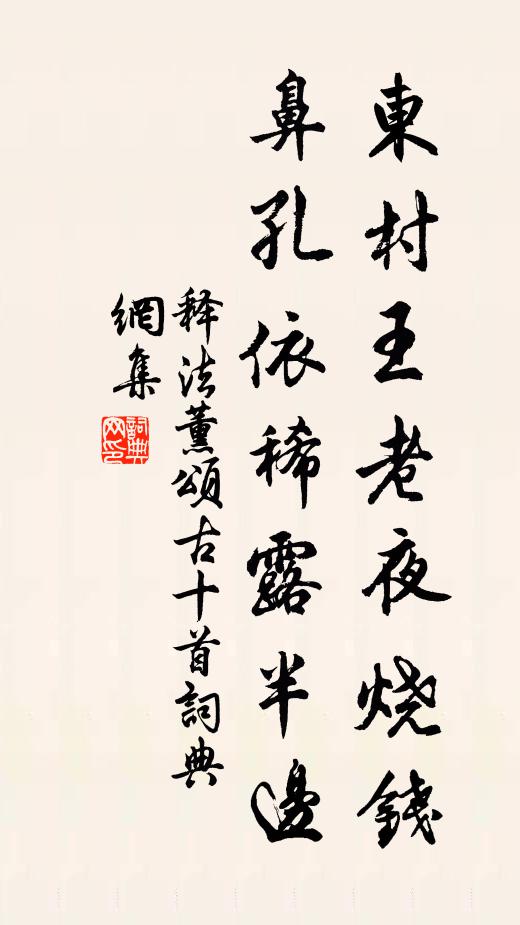 東村王老夜烧錢
鼻孔依稀露半邊
释法薰頌古十首詞典
網集
詞典
网印